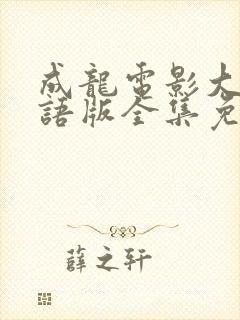 成龍電影大
語版全集免
薛之轩